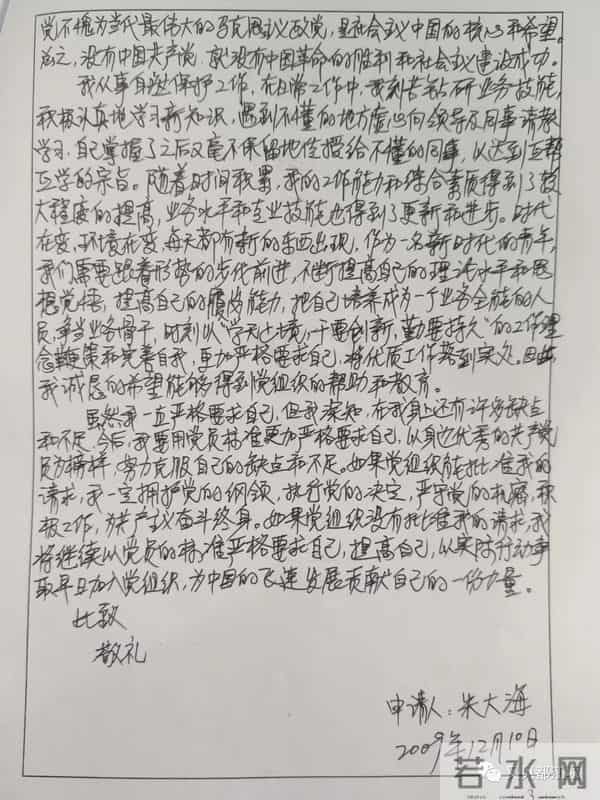 党不愧为当代最伟大的马克思主义政党,是社会主义中国的核心和希望。
总之,没有中国共产党,就没有中国革命的胜利和社会主义建设成功。
我从事自然保护工作,在日常工作中,我刻苦钻研业务技能,
积极认真地学习新知识,遇到不懂的地方虚心向领导及同事请教
学习,自己掌握了之后又毫不保留地传授给不懂的同事,以达到互帮
互学的宗旨。随着时间积累,我的工作能力和综合素质得到了较
大程度的提高,业务水平和专业技能也得到了更新和进步。时代
在变、环境在变,每天都有新的东西出现,作为一名新时代的青年,
我们需要跟着形势的步伐前进,不断提高自己的理论水平和思
想觉悟,提高自己的履岗能力,把自己培养成为一个业务全能的人
员,争当业务骨干,时刻以“学无止境,干要创新,勤要持久”的工作理
念鞭策和完善自我,更加严格要求自己,将优质工作落到实处。因此
我诚恳的希望能够得到党组织的帮助和教育。
虽然我一直严格要求自己,但我深知,在我身上还有许多缺点
和不足,今后,我要用党员标准更加严格要求自己,以身边优秀的共产党
员为榜样,努力克服自己的缺点和不足。如果党组织能批准我的
请求,我一定拥护党的纲领,执行党的决定,严守党的机密,积
极工作,为共产主义奋斗终身。如果党组织没有批准我的请求,我
将继续以党员的标准严格要求自己,提高自己,以实际行动争
取早日加入党组织,为中国的飞速发展贡献自己的一份力量。
此致
敬礼
申请人:朱大海
2009年12月10日
若水网